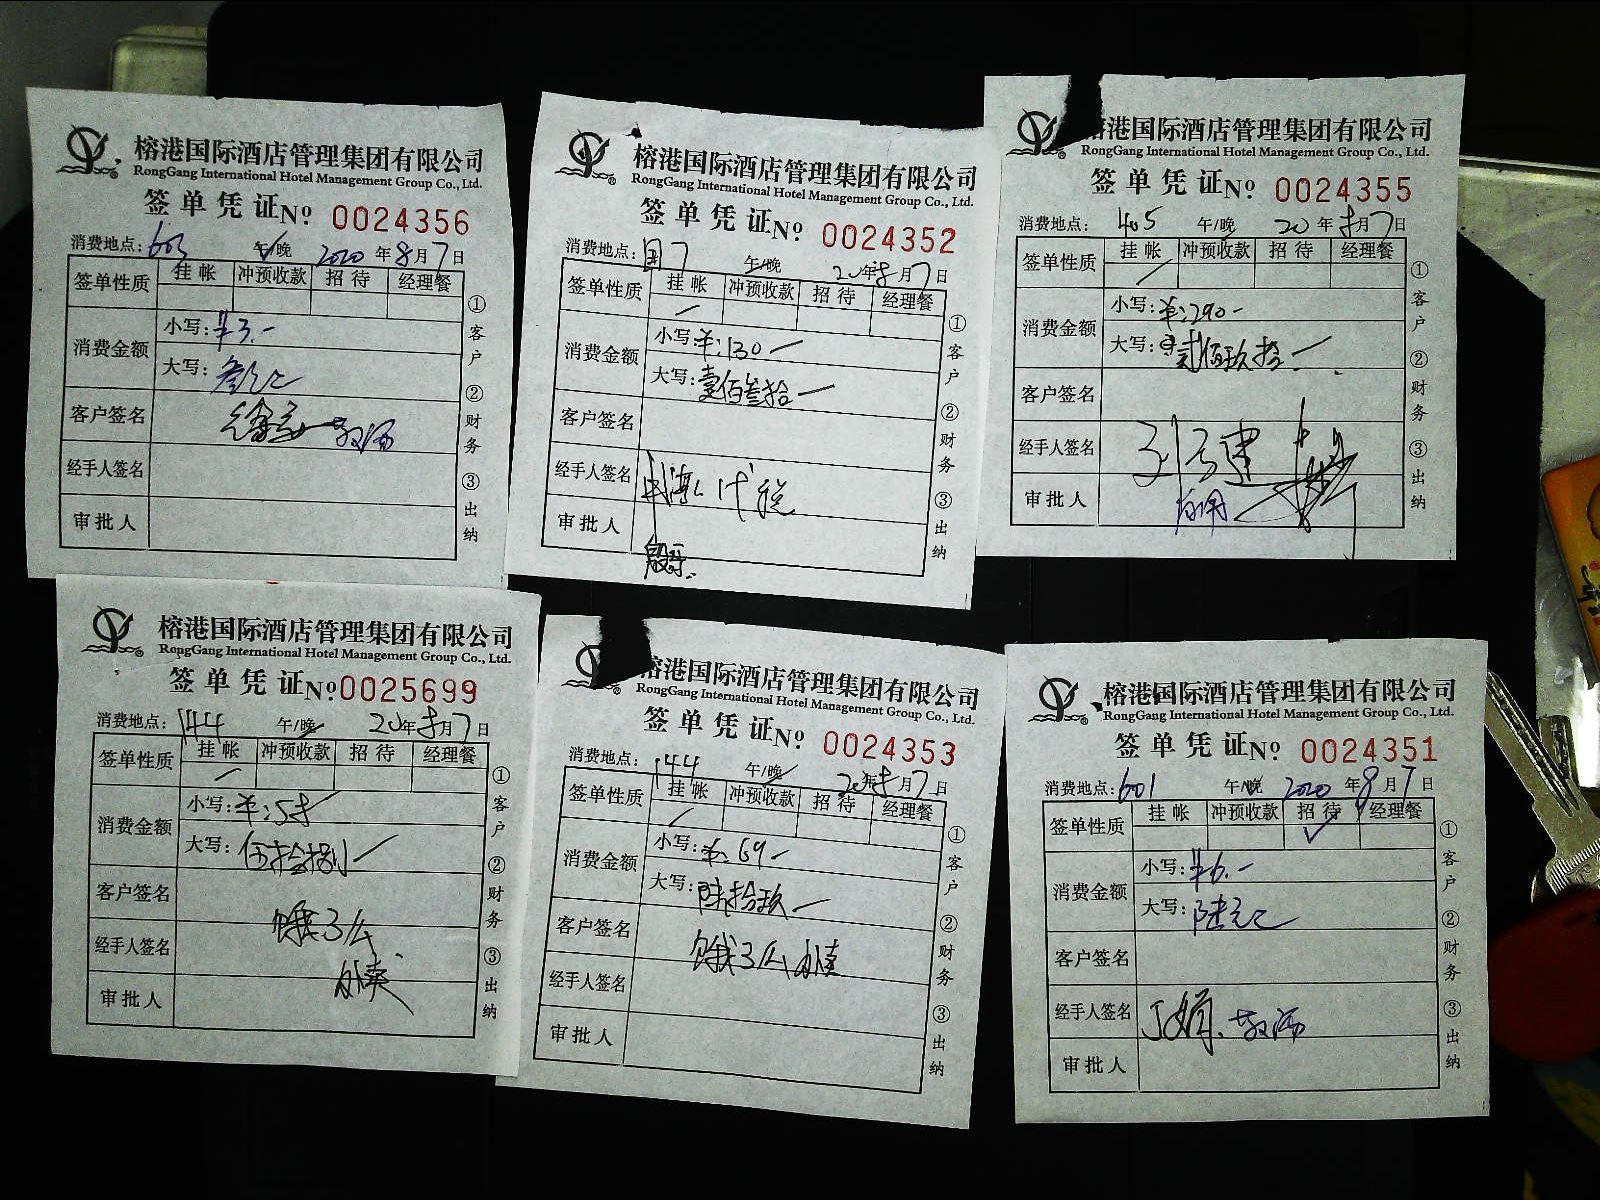 榕港国际酒店管理集团有限公司
RongGang International Hotel Management Group Co., Ltd.
签单凭证 № 0024356
消费地点：603 午/晚 2020年8月7日
签单性质 挂帐 冲预收款 招待 经理餐
消费金额 小写：¥3.-
大写：叁元
客户签名
经手人签名
审批人
①客户 ②财务 ③出纳
榕港国际酒店管理集团有限公司
RongGang International Hotel Management Group Co., Ltd.
签单凭证 № 0024352
消费地点： 午/晚 20年8月7日
签单性质 挂帐 冲预收款 招待 经理餐
消费金额 小写：¥:130-
大写：壹佰叁拾
客户签名
经手人签名
审批人
①客户 ②财务 ③出纳
榕港国际酒店管理集团有限公司
RongGang International Hotel Management Group Co., Ltd.
签单凭证 № 0024355
消费地点：405 午/晚 20年8月7日
签单性质 挂帐 冲预收款 招待 经理餐
消费金额 小写：¥:290-
大写：贰佰玖拾
客户签名
经手人签名
审批人
①客户 ②财务 ③出纳
榕港国际酒店管理集团有限公司
RongGang International Hotel Management Group Co., Ltd.
签单凭证 № 0025699
消费地点：144 午/晚 20年8月7日
签单性质 挂帐 冲预收款 招待 经理餐
消费金额 小写：¥:58
大写：伍拾捌
客户签名
饿了么
经手人签名
审批人
①客户 ②财务 ③出纳
榕港国际酒店管理集团有限公司
RongGang International Hotel Management Group Co., Ltd.
签单凭证 № 0024353
消费地点：144 午/晚 20年8月7日
签单性质 挂帐 冲预收款 招待 经理餐
消费金额 小写：¥:69-
大写：陆拾玖
客户签名 饿了么
经手人签名
审批人
①客户 ②财务 ③出纳
榕港国际酒店管理集团有限公司
RongGang International Hotel Management Group Co., Ltd.
签单凭证 № 0024351
消费地点：601 午/晚 2020年8月7日
签单性质 挂帐 冲预收款 招待 经理餐
消费金额 小写：¥6.-
大写：陆元
客户签名
经手人签名
审批人
①客户 ②财务 ③出纳